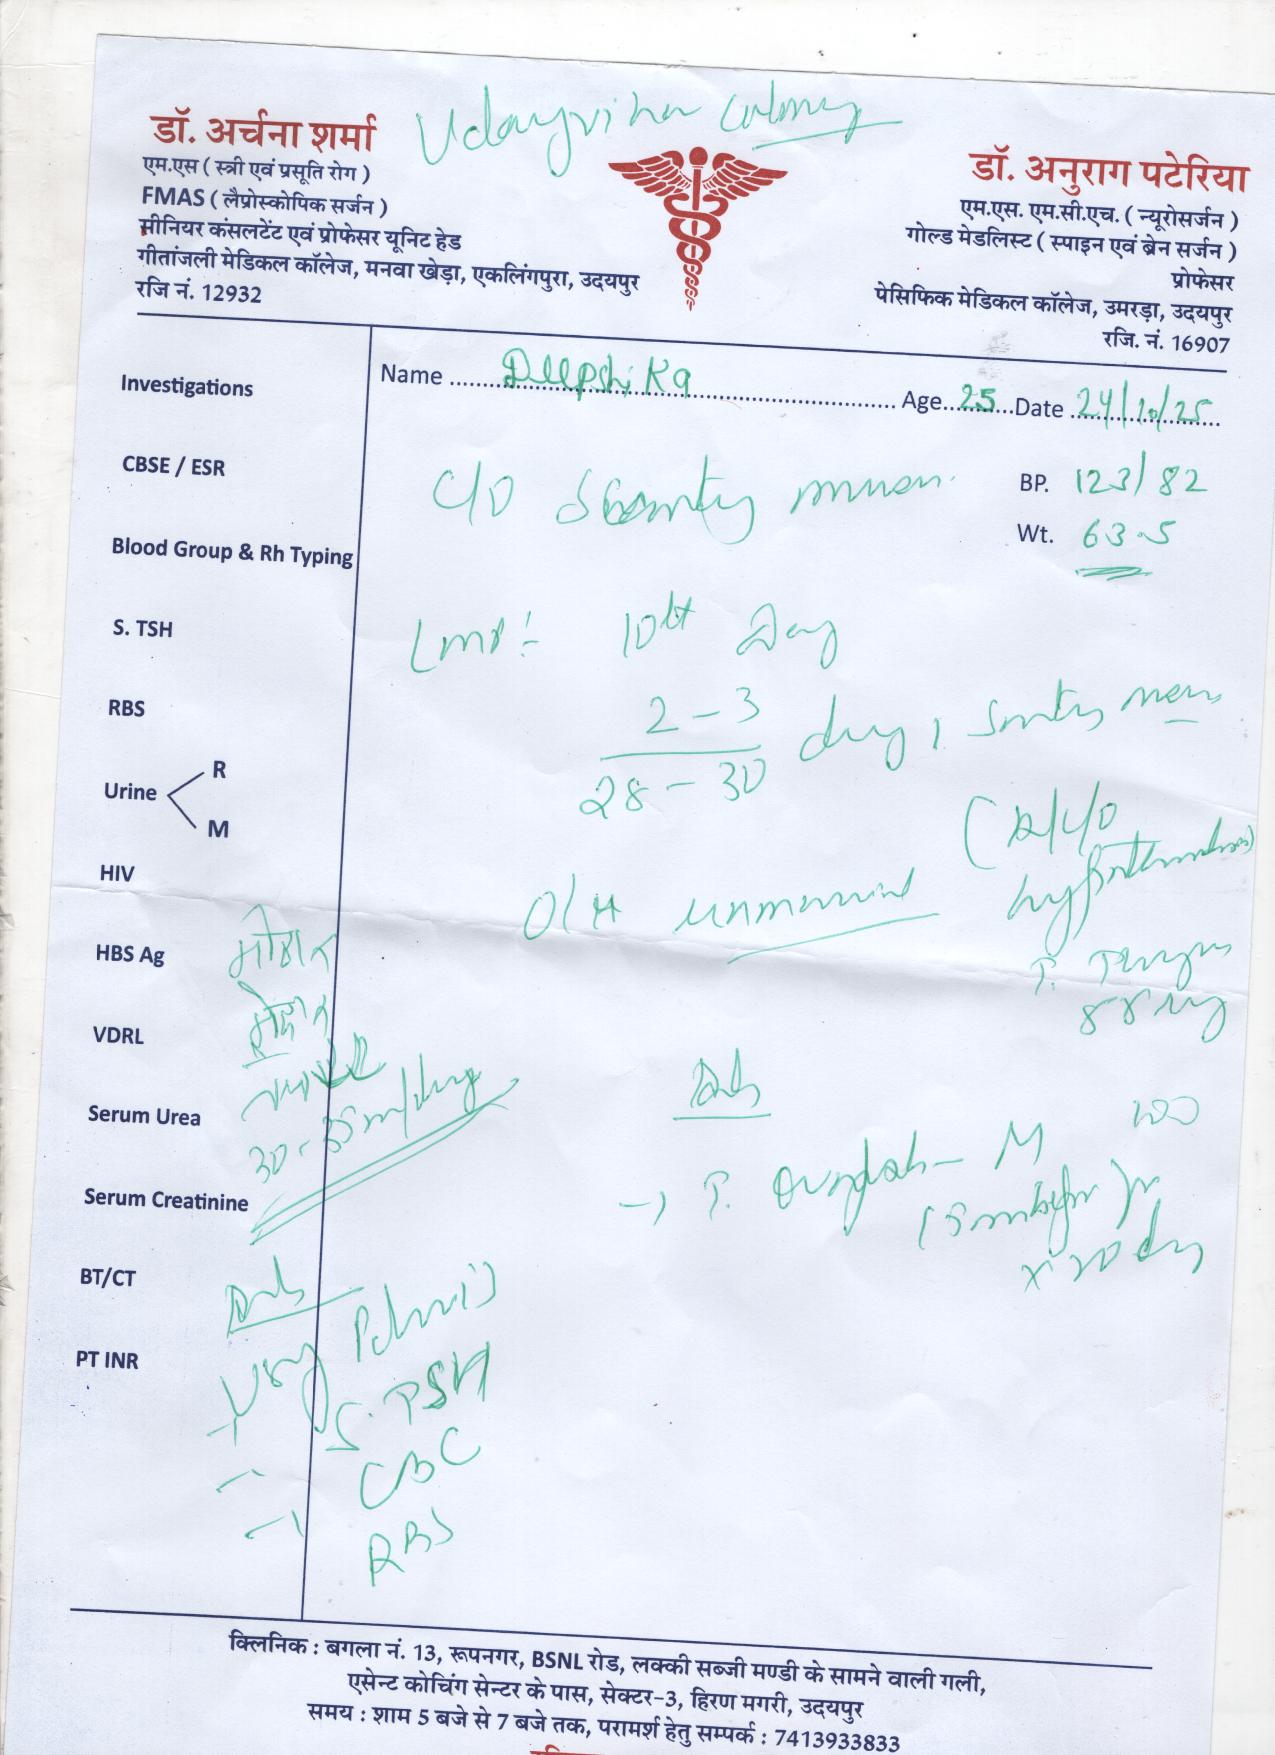 Udayvihar Colony
डॉ. अर्चना शर्मा
एम.एस ( स्त्री एवं प्रसूति रोग )
FMAS ( लैप्रोस्कोपिक सर्जन )
सीनियर कंसलटेंट एवं प्रोफेसर यूनिट हेड
गीतांजली मेडिकल कॉलेज, मनवा खेड़ा, एकलिंगपुरा, उदयपुर
रजि नं. 12932
डॉ. अनुराग पटेरिया
एम.एस. एम.सी.एच. ( न्यूरोसर्जन )
गोल्ड मेडलिस्ट ( स्पाइन एवं ब्रेन सर्जन )
प्रोफेसर
पेसिफिक मेडिकल कॉलेज, उमरड़ा, उदयपुर
रजि. नं. 16907
Name Deepshika Age 25 Date 24/10/25
BP. 123/82
Wt. 63.5
C/O Scanty
LMP :- 10th Day
2 - 3
28 - 30
days, Scanty mens
O/H unmarried
88 mcg
Adv
M
x 20 days
Investigations
CBSE / ESR
Blood Group & Rh Typing
S. TSH
RBS
Urine R
M
HIV
HBS Ag
VDRL
Serum Urea
Serum Creatinine
BT/CT
PT INR
30 - 35 m/day
Adv
USG Pelvis
S. TSH
CBC
RBS
क्लिनिक : बगला नं. 13, रूपनगर, BSNL रोड, लक्की सब्जी मण्डी के सामने वाली गली,
एसेन्ट कोचिंग सेन्टर के पास, सेक्टर-3, हिरण मगरी, उदयपुर
समय : शाम 5 बजे से 7 बजे तक, परामर्श हेतु सम्पर्क : 7413933833